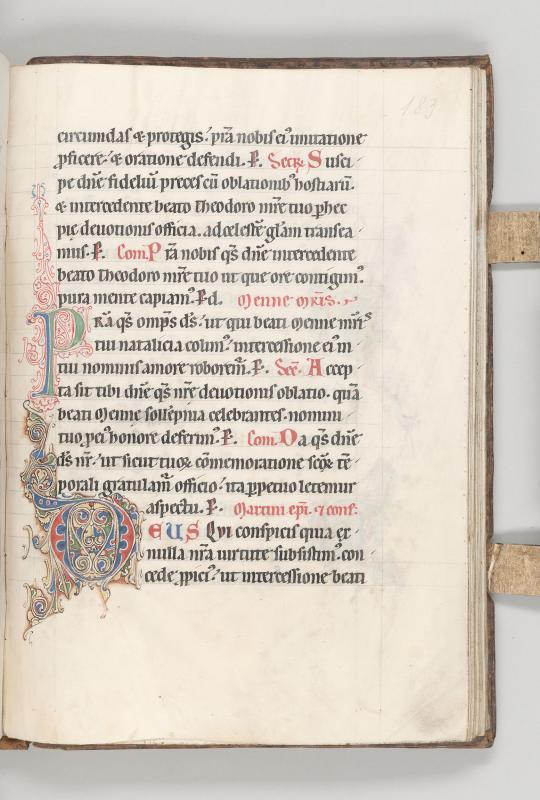 183
circumdas & protegis. p̄ra nobis ei᷒ imitatione
ꝓficere. & oratione defendi. P. Secr̄. Susci
pe dn̄e fideliū preces cū oblationib᷒ hostiarū.
& intercedente beato theodoro mr̄e tuo p hec
pie deuotionis officia. ad celestē gl̄am transea
mus. P. Com̄. Pra nobis qs̄ dn̄e intercedente
beato theodoro mr̄e tuo ut que ore contigim᷒.
pura mente capiam᷒. P d. Menne mr̄is.
Pra qs̄ omp̄s ds̄. ut qui beati Menne mr̄is
tui natalicia colim᷒. intercessione ei᷒ in
tui nominis amore roborem̄. P. Sec̄. Accep
ta sit tibi dn̄e qs̄ nr̄e deuotionis oblatio. quā
beati Menne sollēpnia celebrantes. nomini
tuo ꝓ ei᷒ honore deferim᷒. P. Com̄. Da qs̄ dn̄e
ds̄ nr̄. ut sicut tuoꝝ cōmemoratione scōꝝ tē
porali gratulam̄ officio. ita ꝑpetuo letemur
aspectu. P. Martini ep̄i. ⁊ conf.
DEUS Qui conspicis quia ex
nulla nr̄a uirtute subsistim᷒. con
cede ꝓpici᷒. ut intercessione beati